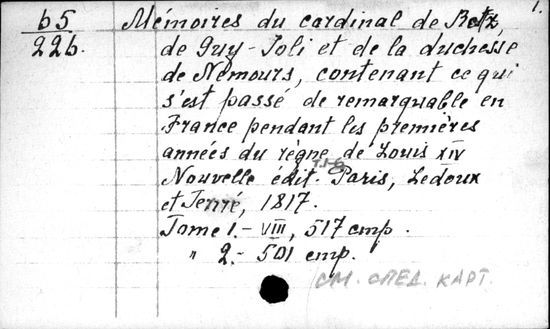 1.
б5
22б.
Mémoires du cardinal de Retz,
de Guy-Joli et de la duchesse
de Nemours, contenant ce qui
s'est passé de remarquable en
France pendant les premières
années du règne de Louis XIV
т.1-6
Nouvelle édit. Paris, Ledoux
et Tenré, 1817.
Tome 1.- VIII, 517 стр.
" 2.- 501 стр.
СМ. СЛЕД. КАРТ.